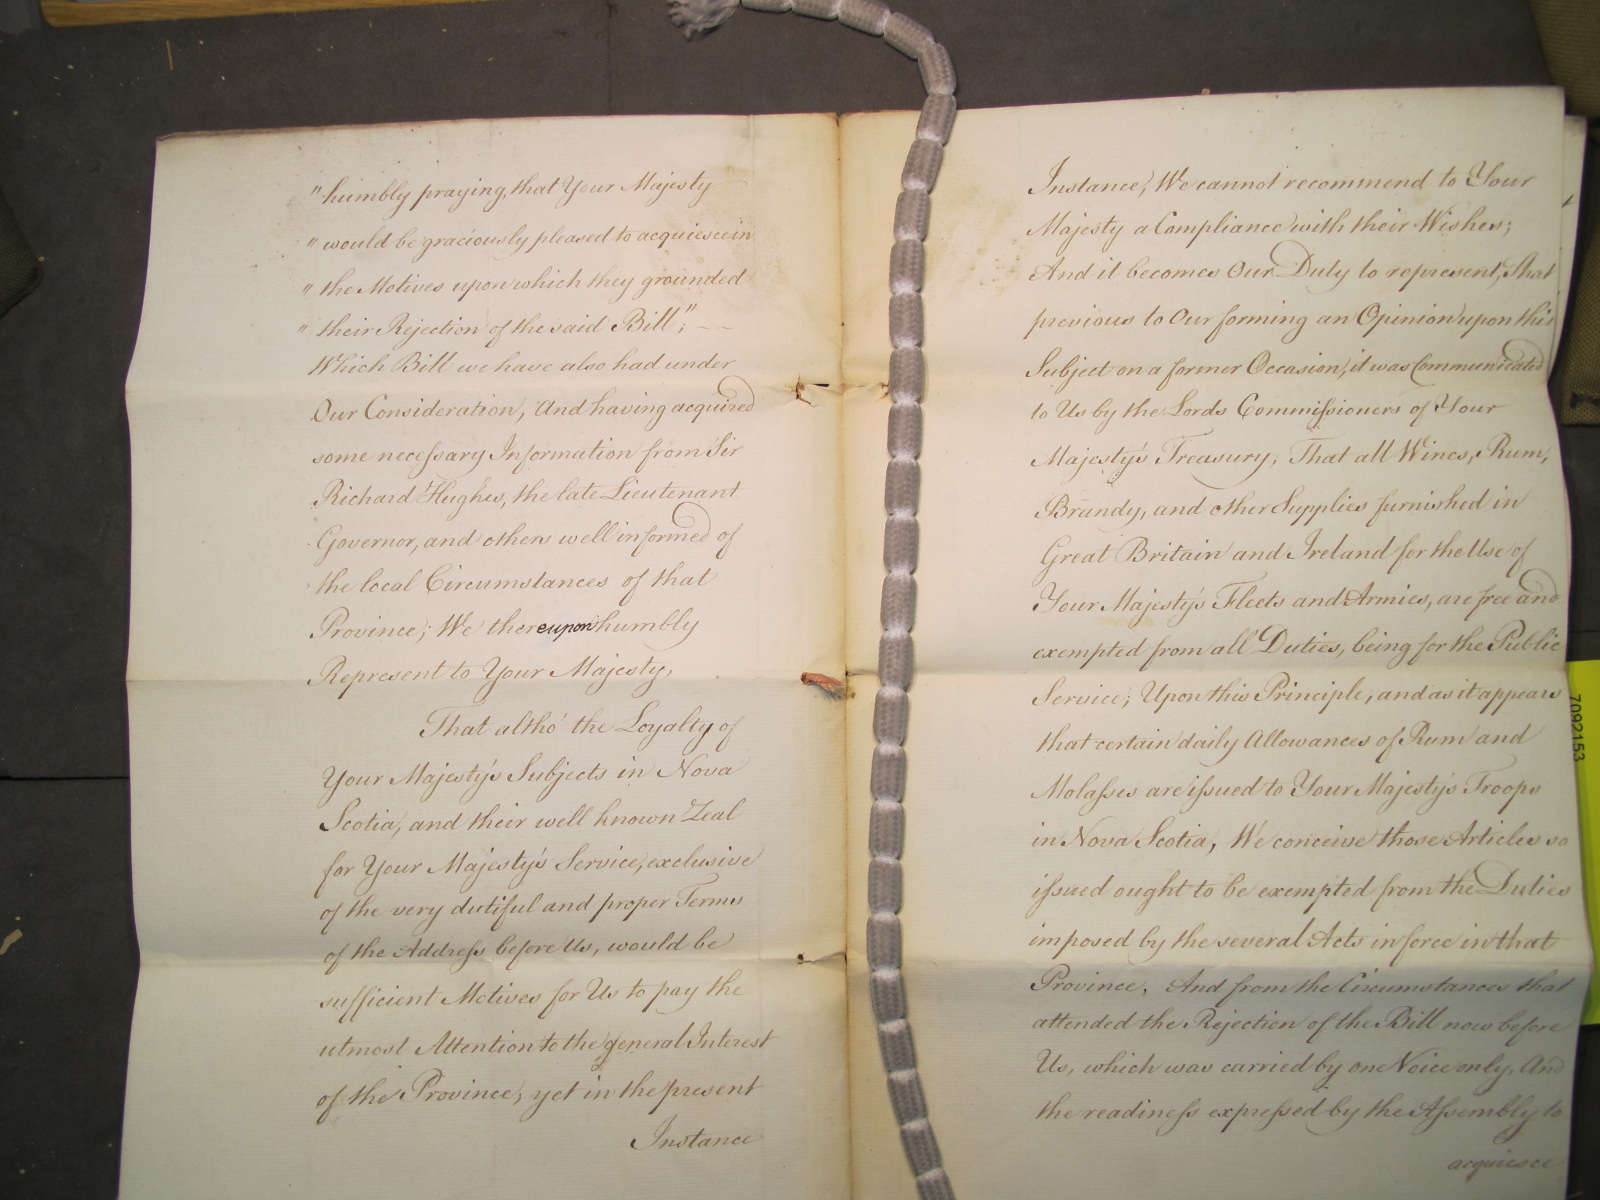 " humbly praying, that Your Majesty
" would be graciously pleased to acquiesce in
" the Motives upon which they grounded
" their Rejection of the said Bill";
Which Bill we have also had under
Our Consideration, And having acquired
some necessary Information from Sir
Richard Hughes, the late Lieutenant
Governor, and others well informed of
the local Circumstances of that
Province; We thereupon humbly
Represent to Your Majesty,
That altho' the Loyalty of
Your Majesty's Subjects in Nova
Scotia, and their well known Zeal
for Your Majesty's Service, exclusive
of the very dutiful and proper Terms
of the Address before Us, would be
sufficient Motives for Us to pay the
utmost Attention to the general Interest
of the Province; yet in the present
Instance
Instance, We cannot recommend to Your
Majesty a Compliance with their Wishes;
And it becomes Our Duty to represent, That
previous to Our forming an Opinion upon this
Subject on a former Occasion, it was Communicated
to Us by the Lords Commissioners of Your
Majesty's Treasury; That all Wines, Rum,
Brandy, and other Supplies furnished in
Great Britain and Ireland for the Use of
Your Majesty's Fleets and Armies, are free and
exempted from all Duties, being for the Public
Service; Upon this Principle, and as it appears
that certain daily Allowances of Rum and
Molasses are issued to Your Majesty's Troops
in Nova Scotia, We conceive those Articles so
issued ought to be exempted from the Duties
imposed by the several Acts in force in that
Province, And from the Circumstances that
attended the Rejection of the Bill now before
Us, which was carried by one Voice only, And
the readiness expressed by the Assembly to
acquiesce
7092153